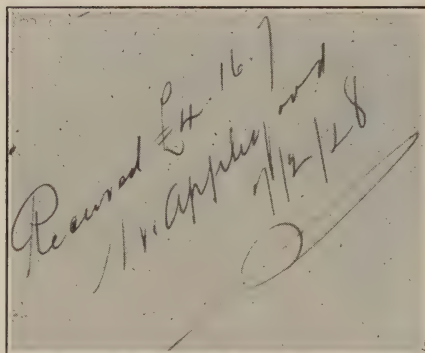 Received £4.16.7
Appleyard
7/2/28